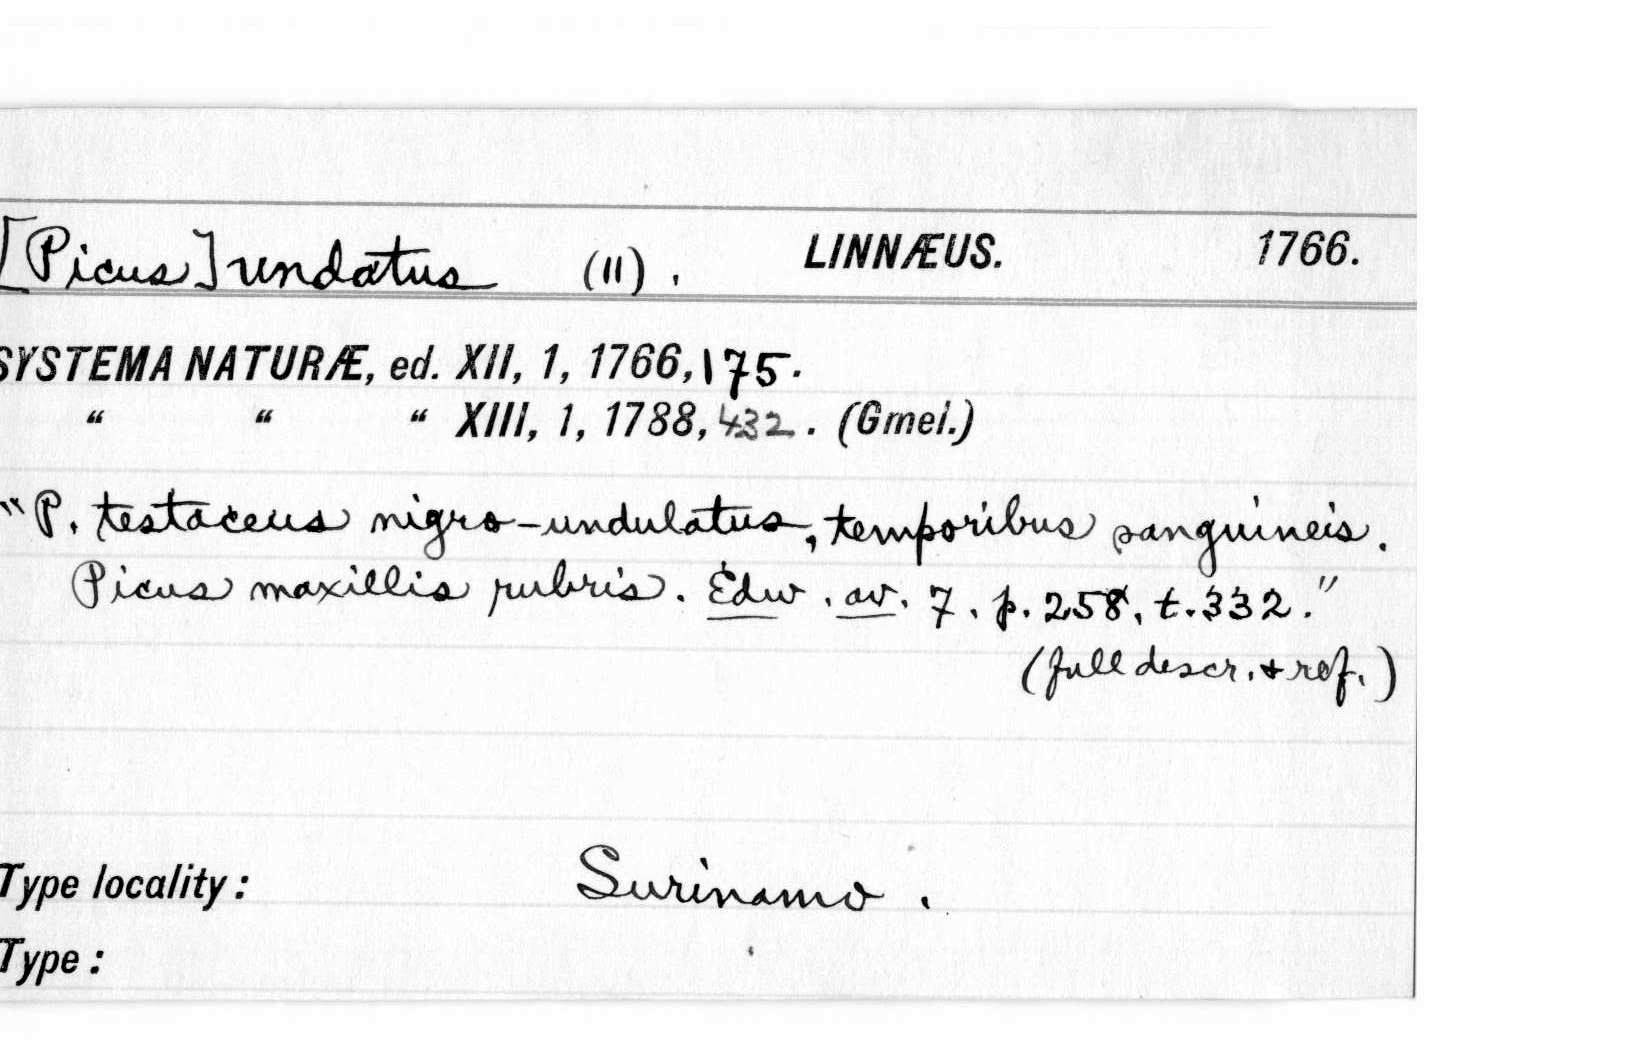 [Picus] undatus (11). LINNÆUS. 1766.
SYSTEMA NATURÆ, ed. XII, 1, 1766, 175.
“ “ “ XIII, 1, 1788, 432. (Gmel.)
"P. testaceus nigro-undulatus, temporibus sanguineis.
Picus maxillis rubris. Edw. av. 7. p. 258, t. 332."
(full descr. & ref.)
Type locality: Surinamo.
Type: